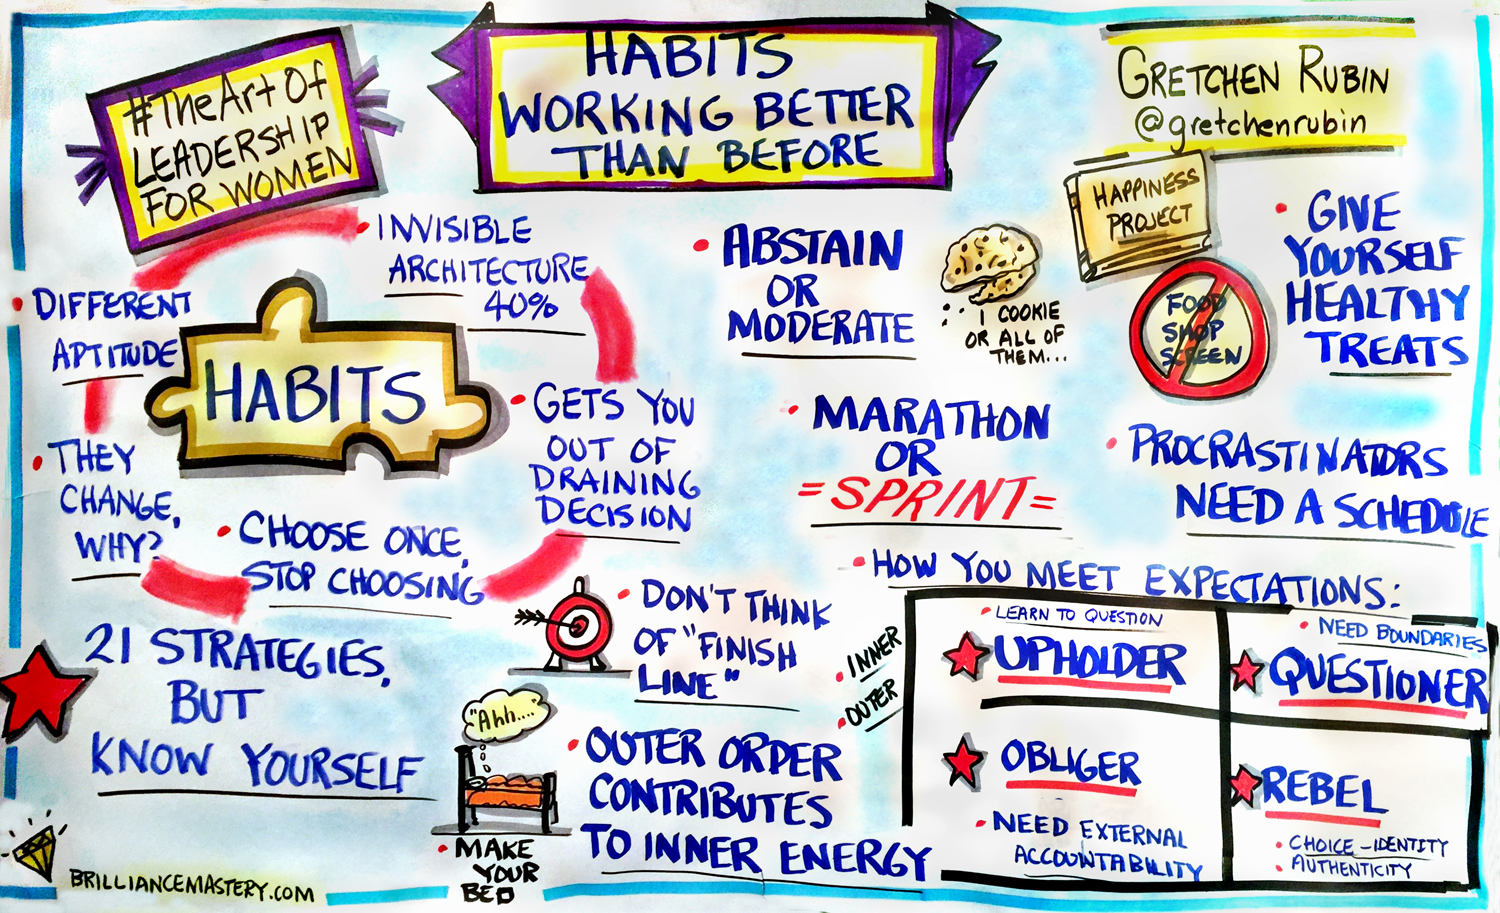 #TheArt Of
LEADERSHIP
FOR WOMEN
HABITS
WORKING BETTER
THAN BEFORE
GRETCHEN RUBIN
@gretchenrubin
• INVISIBLE
ARCHITECTURE
40%
• DIFFERENT
APTITUDE
HABITS
• GETS YOU
OUT OF
DRAINING
DECISION
• THEY
CHANGE,
WHY?
• CHOOSE ONCE,
STOP CHOOSING
21 STRATEGIES,
BUT
KNOW YOURSELF
BRILLIANCEMASTERY.COM
• ABSTAIN
OR
MODERATE
1 COOKIE
OR ALL OF
THEM...
HAPPINESS
PROJECT
FOOD
SHOP
SCREEN
• GIVE
YOURSELF
HEALTHY
TREATS
• MARATHON
OR
=SPRINT=
• PROCRASTINATORS
NEED A SCHEDULE
• DON'T THINK
OF "FINISH
LINE"
"Ahh....
• MAKE
YOUR
BED
• OUTER ORDER
CONTRIBUTES
TO INNER ENERGY
• HOW YOU MEET EXPECTATIONS:
• INNER
• OUTER
• LEARN TO QUESTION
UPHOLDER
• NEED BOUNDARIES
QUESTIONER
OBLIGER
• NEED EXTERNAL
ACCOUNTABILITY
REBEL
• CHOICE-IDENTITY
• AUTHENTICITY